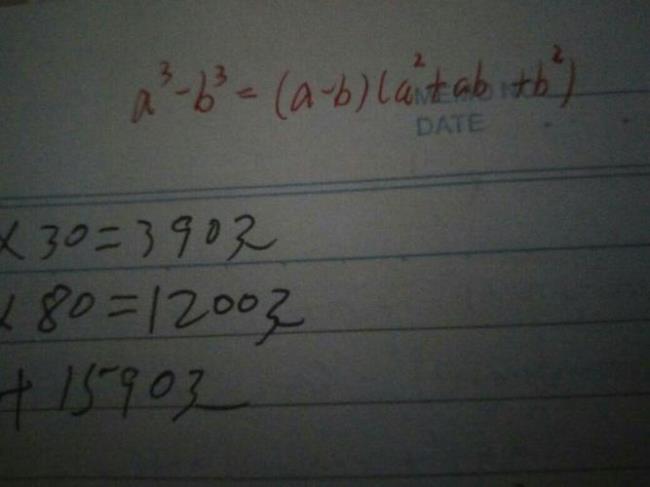 a³-b³=(a-b)(a²+ab+b²)
DATE
×30=390元
×80=1200元
十1590元